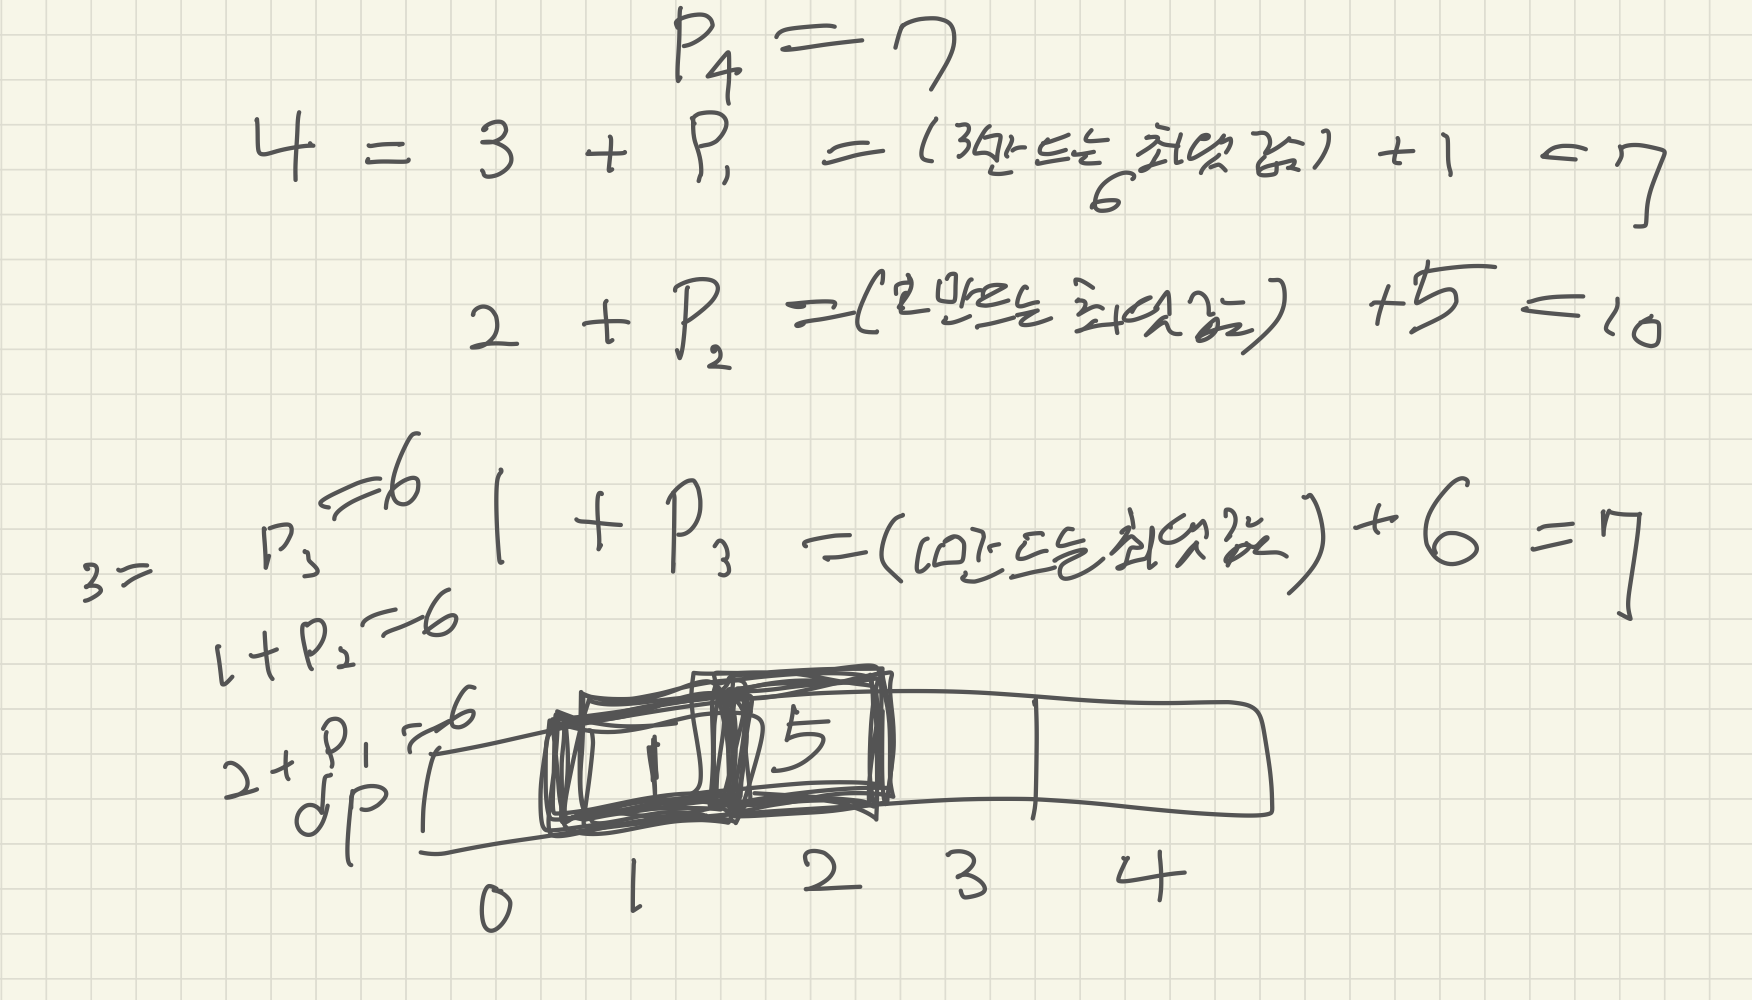 P₄ = 7
4 = 3 + P₁ = (3만드는 최댓값) + 1 = 7
6
2 + P₂ = (2만드는 최댓값) + 5 = 10
1 + P₃ = (1만드는 최댓값) + 6 = 7
3 = P₃ = 6
1 + P₂ = 6
2 + P₁ = 6
dp 1 5
0 1 2 3 4